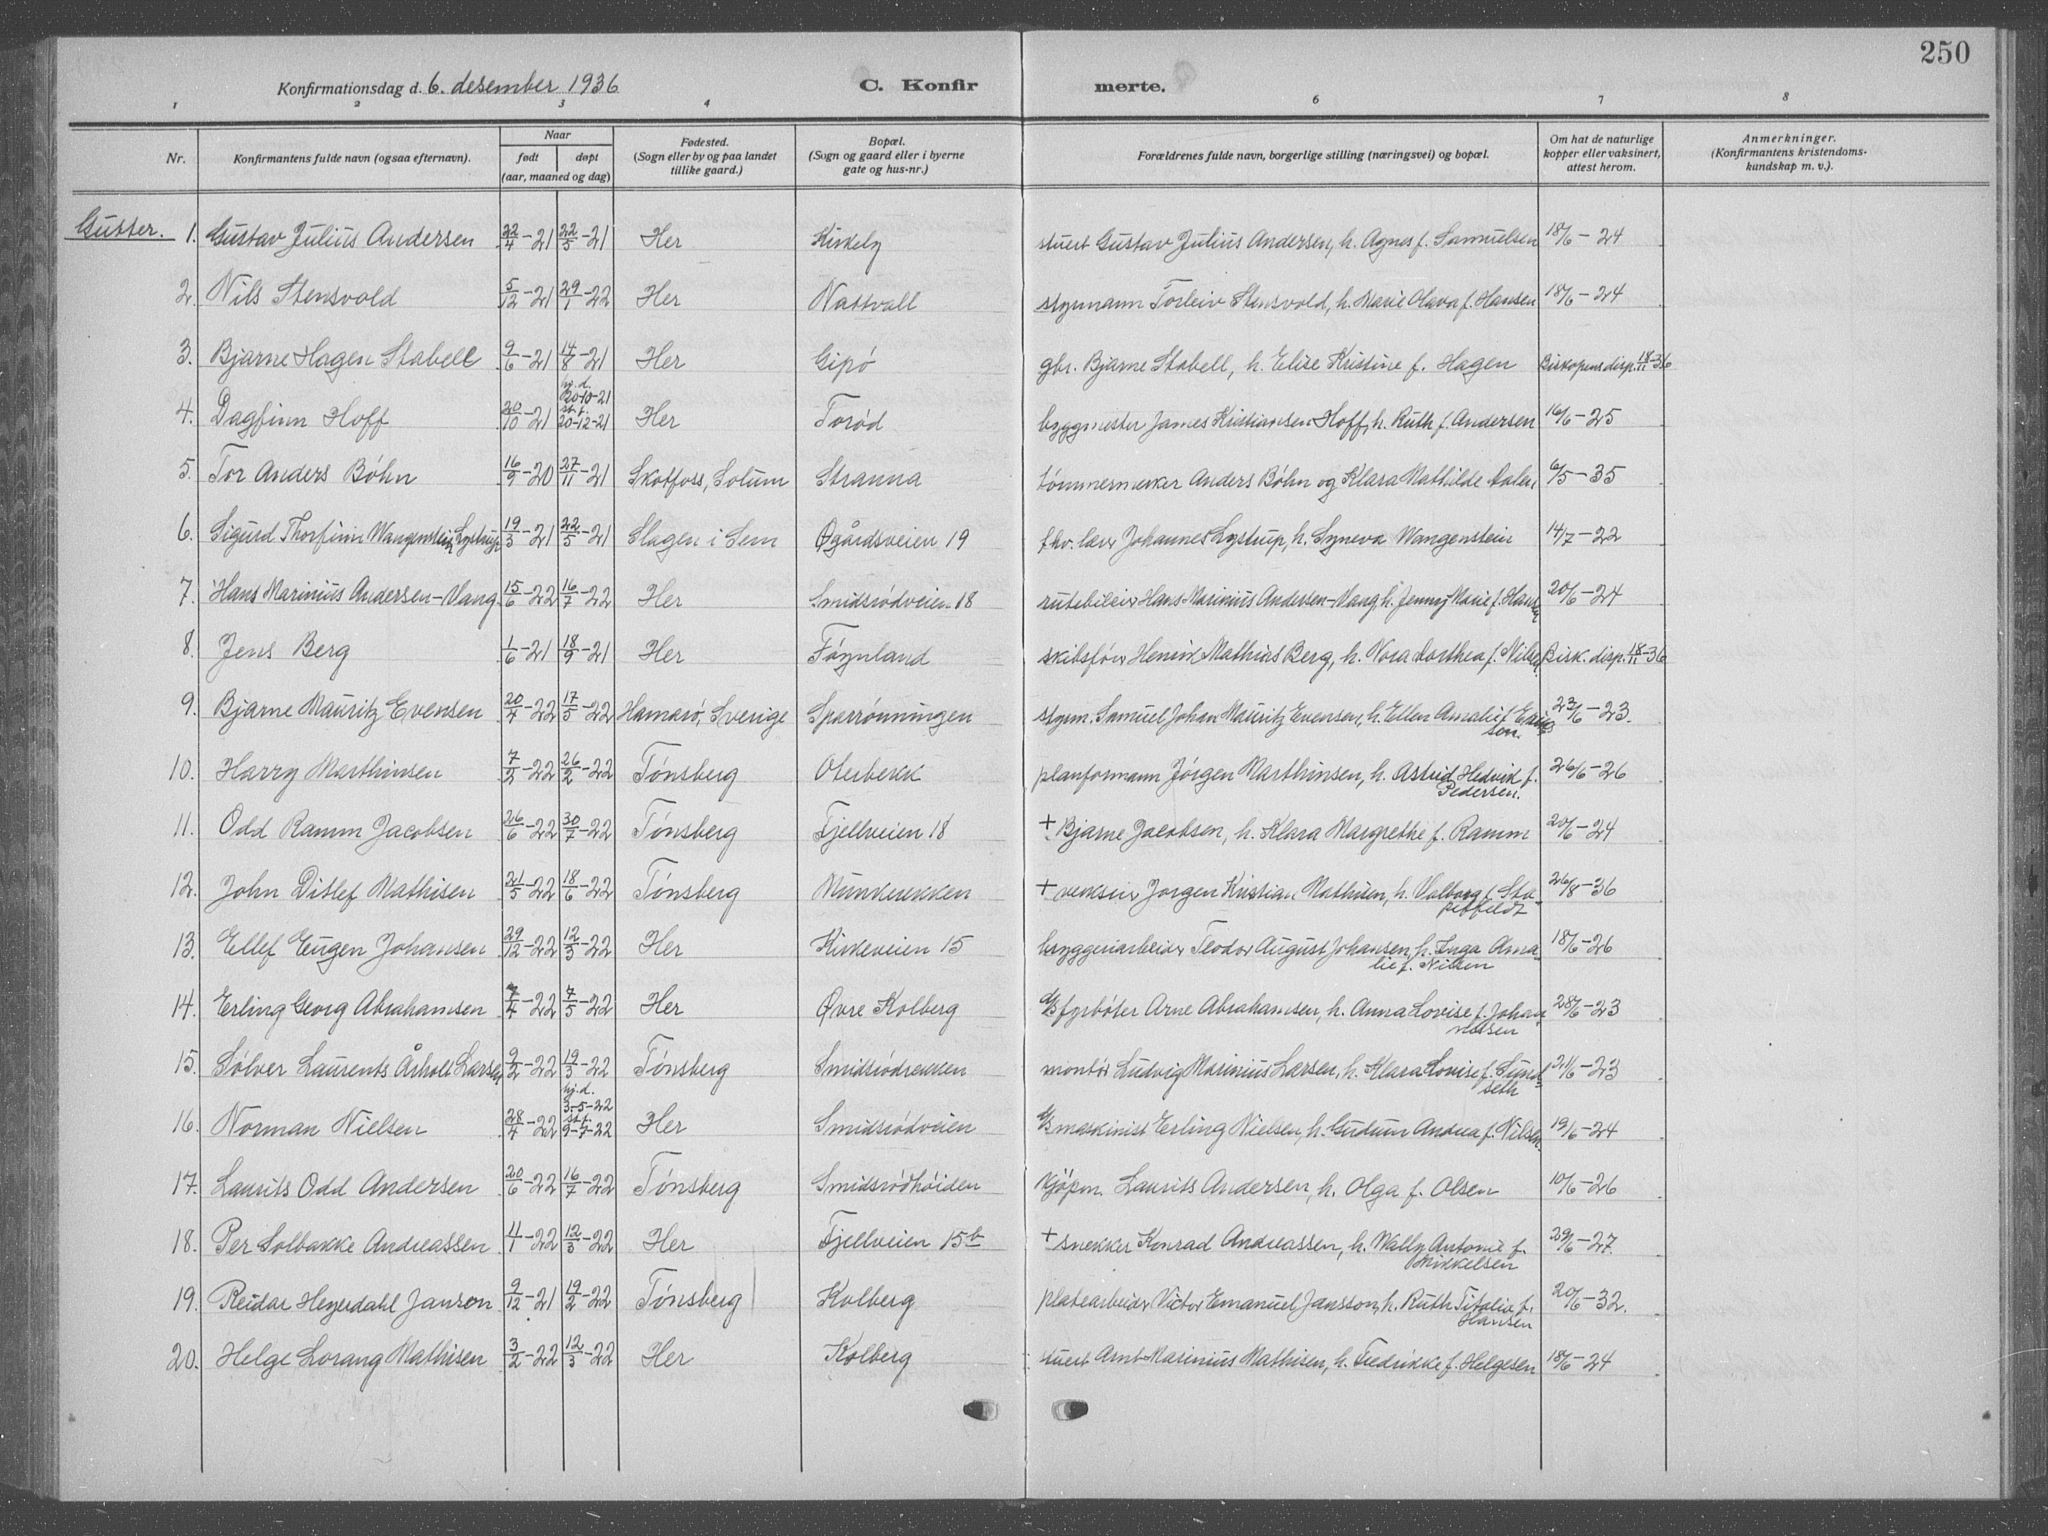 250
Konfirmationsdag d. 6. desember 1936 C. Konfir merte.
1 2 3 4 6 7 8
Nr. Konfirmantens fulde navn (ogsaa efternavn). Naar født døpt (aar, maaned og dag) Fødested. (Sogn eller by og paa landet tillike gaard.) Bopæl. (Sogn og gaard eller i byerne gate og hus-nr.) Forældrenes fulde navn, borgerlige stilling (næringsvei) og bopæl. Om hat de naturlige kopper eller vaksinert, attest herom. Anmerkninger. (Konfirmantens kristendoms-kundskap m. v.).
Gutter. 1. Gustav Julius Andersen 22/4-21 22/5-21 Her Kirkeby stuert Gustav Julius Andersen, h. Agnes f. Samuelsen 18/6-24
2. Nils Stensvold 5/12-21 29/1-22 Her Nattvall styrmann Torleiv Stensvold, h. Marie Olava f. Hansen 18/6-24
3. Bjarne Hagen Stabell 9/6-21 14/8-21 Her Gipø gbr. Bjarne Stabell, h. Elise Kristine f. Hagen Biskopens disp. 18/11-36
4. Dagfinn Hoff 20/10-21 hj.d. 20-10-21 st.f. 20-12-21 Her Torød byggmester James Kristiansen Hoff, h. Ruth f. Andersen 16/6-25
5. Tor Anders Bøhn 16/9-20 27/11-21 Skotfoss, Solum Stranna tømmermerker Anders Bøhn og Klara Mathilde 6/5-35
6. Sigurd Thorfinn Wangenstein Lystrup 19/3-21 22/5-21 Slagen i Sem Øgårdsveien 19 fhv. lærer Johannes Lystrup, h. Syneva Wangenstein 14/7-22
7. Hans Marinius Andersen-Vang 15/6-22 16/7-22 Her Smidsrødveien 18 rutebileier Hans Marinius Andersen-Vang, h. Jenny Marie f. Hansen 20/6-24
8. Jens Berg 1/6-21 18/9-21 Her Føynland skibsfører Henrik Mathias Berg, h. Nora Dorthea f. Nilsen Bisk. disp. 18/11-36
9. Bjarne Mauritz Evensen 20/4-22 17/5-22 Hamarø, Sverige Sparrønningen styrm. Samuel Johan Mauritz Evensen, h. Ellen Amalie f. Erics
sen. 23/6-23.
10. Harry Marthinsen 7/2-22 26/2-22 Tønsberg Oterbekk planformann Jørgen Marthinsen, h. Astrid Hedvik f.
Pedersen. 26/6-26
11. Odd Ramm Jacobsen 26/6-22 30/7-22 Tønsberg Fjellveien 18 + Bjarne Jacobsen, h. Klara Margrethe f. Ramm 20/6-24
12. John Ditlef Mathisen 21/5-22 18/6-22 Tønsberg Munkerekken + verkseier Jørgen Kristian Mathisen, h. Valborg f. Sta-
pelfeldt 26/8-36
13. Ellef Eugen Johansen 29/12-22 12/3-22 Her Kirkeveien 15 bryggeriarbeider Teodor August Johansen, h. Inga Ama-
lie f. Nilsen 18/6-26
14. Erling Georg Abrahamsen 7/4-22 7/5-22 Her Øvre Kolberg fyrbøter Arne Abrahamsen, h. Anna Lovise f. Johan
nessen 28/6-23
15. Sølver Laurents Årholt Larsen 9/2-22 19/3-22 Tønsberg Smidsrødrekken montør Ludvig Marinius Larsen, h. Klara Lovise f. Sund-
seth 21/6-23
16. Norman Nielsen 28/4-22 hj.d. 3-5-22 st.f. 9-7-22 Her Smidsrødveien maskinist Erling Nielsen, h. Gudrun Andrea f. Nilsen 19/6-24
17. Laurits Odd Andersen 20/6-22 16/7-22 Tønsberg Smidsrødhøiden kjøpm. Laurits Andersen, h. Olga f. Olsen 10/6-26
18. Per Solbakke Andreassen 4/1-22 12/3-22 Her Fjellveien 15b + snekker Konrad Andreassen, h. Wally Antonie f.
Mikkelsen 29/6-27.
19. Reidar Heyerdahl Janson 9/12-21 19/2-22 Tønsberg Kolberg platearbeider Victor Emanuel Jansson, h. Ruth Titaliv f.
Hansen 20/6-32.
20. Helge Lorang Mathisen 3/2-22 12/3-22 Her Kolberg stuert Arnt Marinius Mathisen, h. Fredrikke f. Helgesen 18/6-24